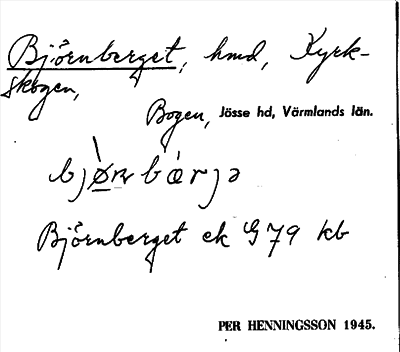 Björnberget, hmd, Kyrk-
skogen,
Bogen, Jösse hd, Värmlands län.
Björnberget ek G 79 kb
PER HENNINGSSON 1945.